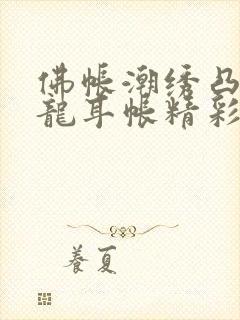 佛帐潮绣凸
龍耳帐精彩
養夏